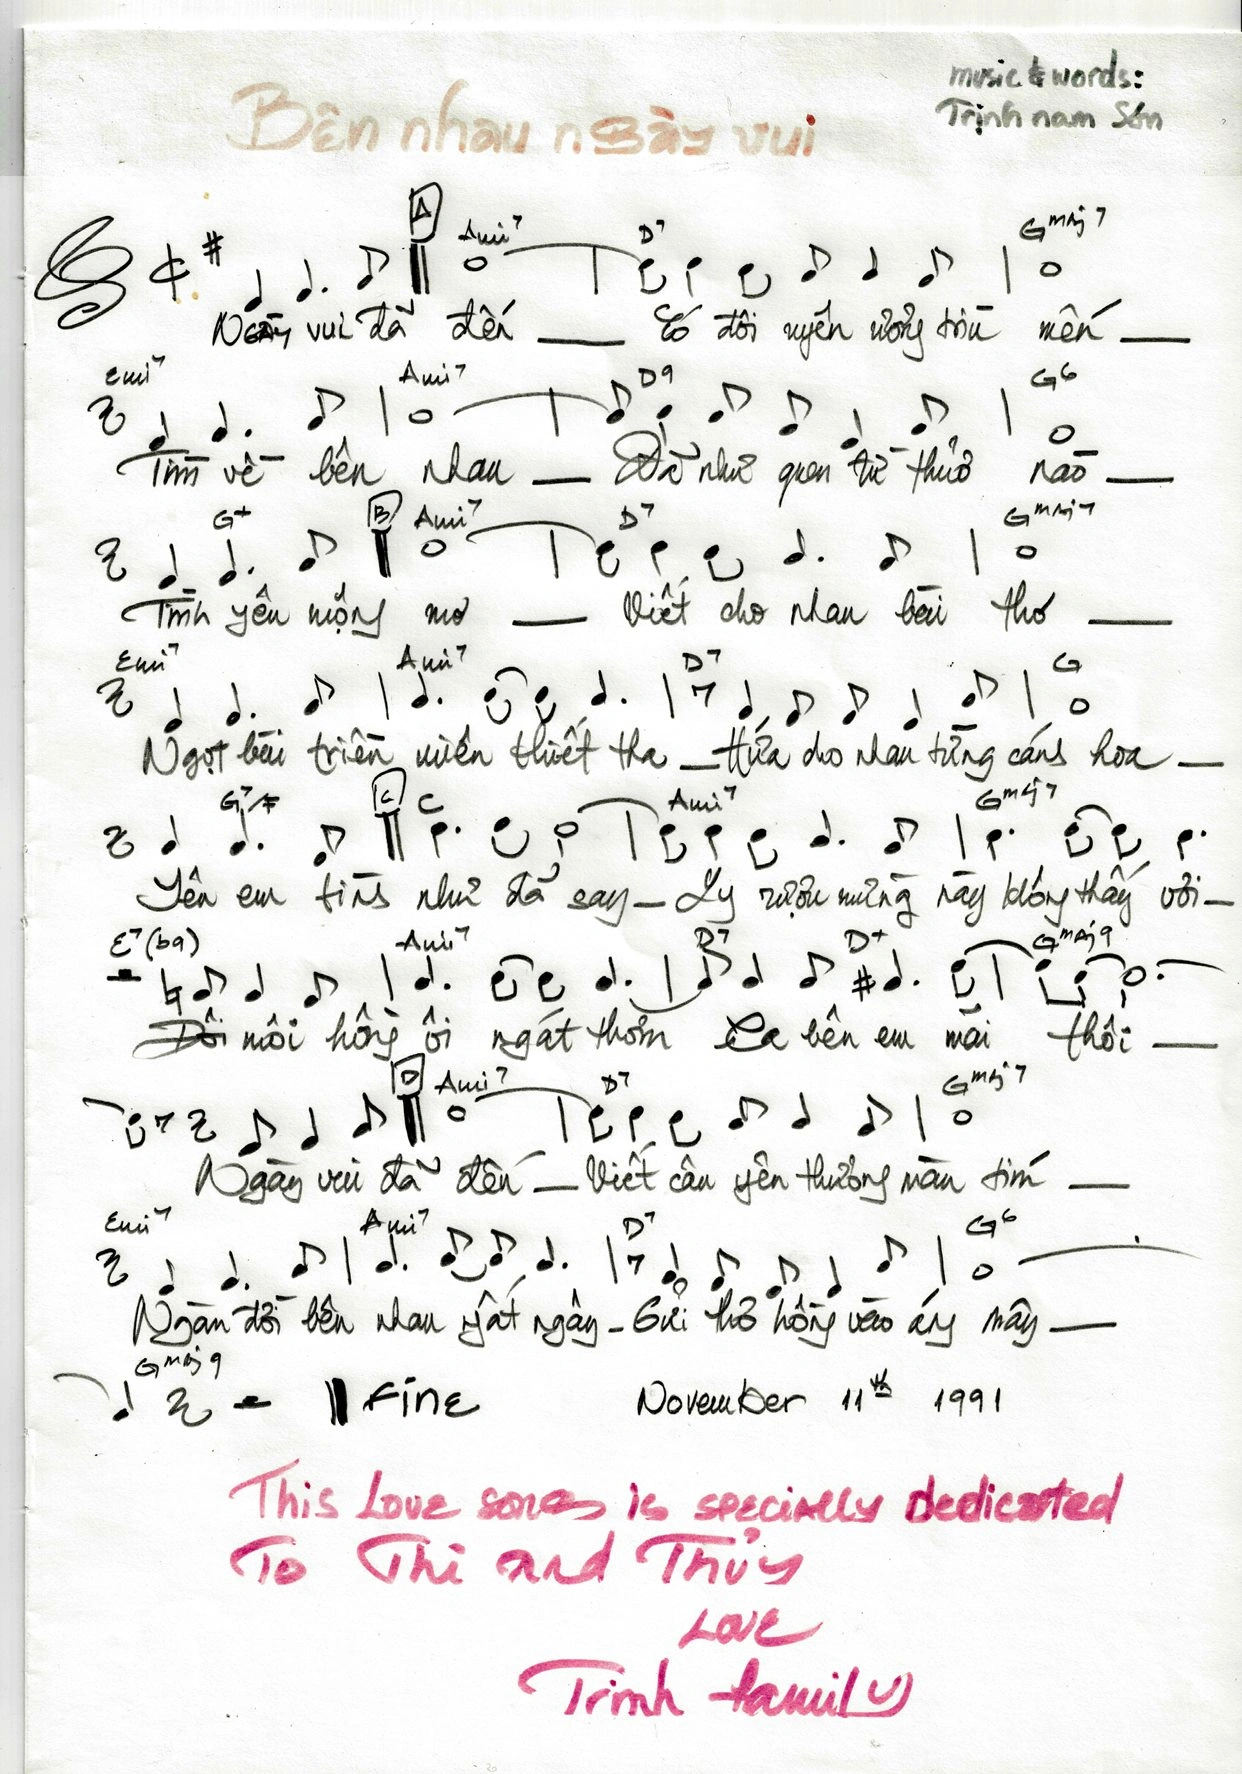 music & words:
Trịnh nam Sơn
Bên nhau ngày vui
A
Ami7 D7 Gmaj7
Ngày vui đã đến ___ Có đôi uyên ương tìm mến ___
Emi7 Ami7 D9 G6
Tìm về bên nhau ___ Đã như quen từ thuở nào ___
G+ B Ami7 D7 Gmaj7
Tình yêu mộng mơ ___ Viết cho nhau bài thơ ___
Emi7 Ami7 D7 G
Ngọt bùi triền miên thiết tha _ Hứa cho nhau từng cánh hoa _
G7/F C C Ami7 Gmaj7
Yêu em tình như đã say _ Ly rượu mừng này không thấy vơi _
E7(b9) Ami7 D7 D+ Gmaj9
Đôi môi hồng ôi ngát thơm Ca bên em mãi thôi ___
D Ami7 D7 Gmaj7
Ngày vui đã đến _ Viết câu yêu thương màu tím ___
Emi7 Ami7 D7 G6
Ngàn đời bên nhau ngất ngây _ Gửi thơ hồng vào áng mây ___
Gmaj9
Fine November 11th 1991
This Love song is specially dedicated
To Thi and Thủy
Love
Trinh family